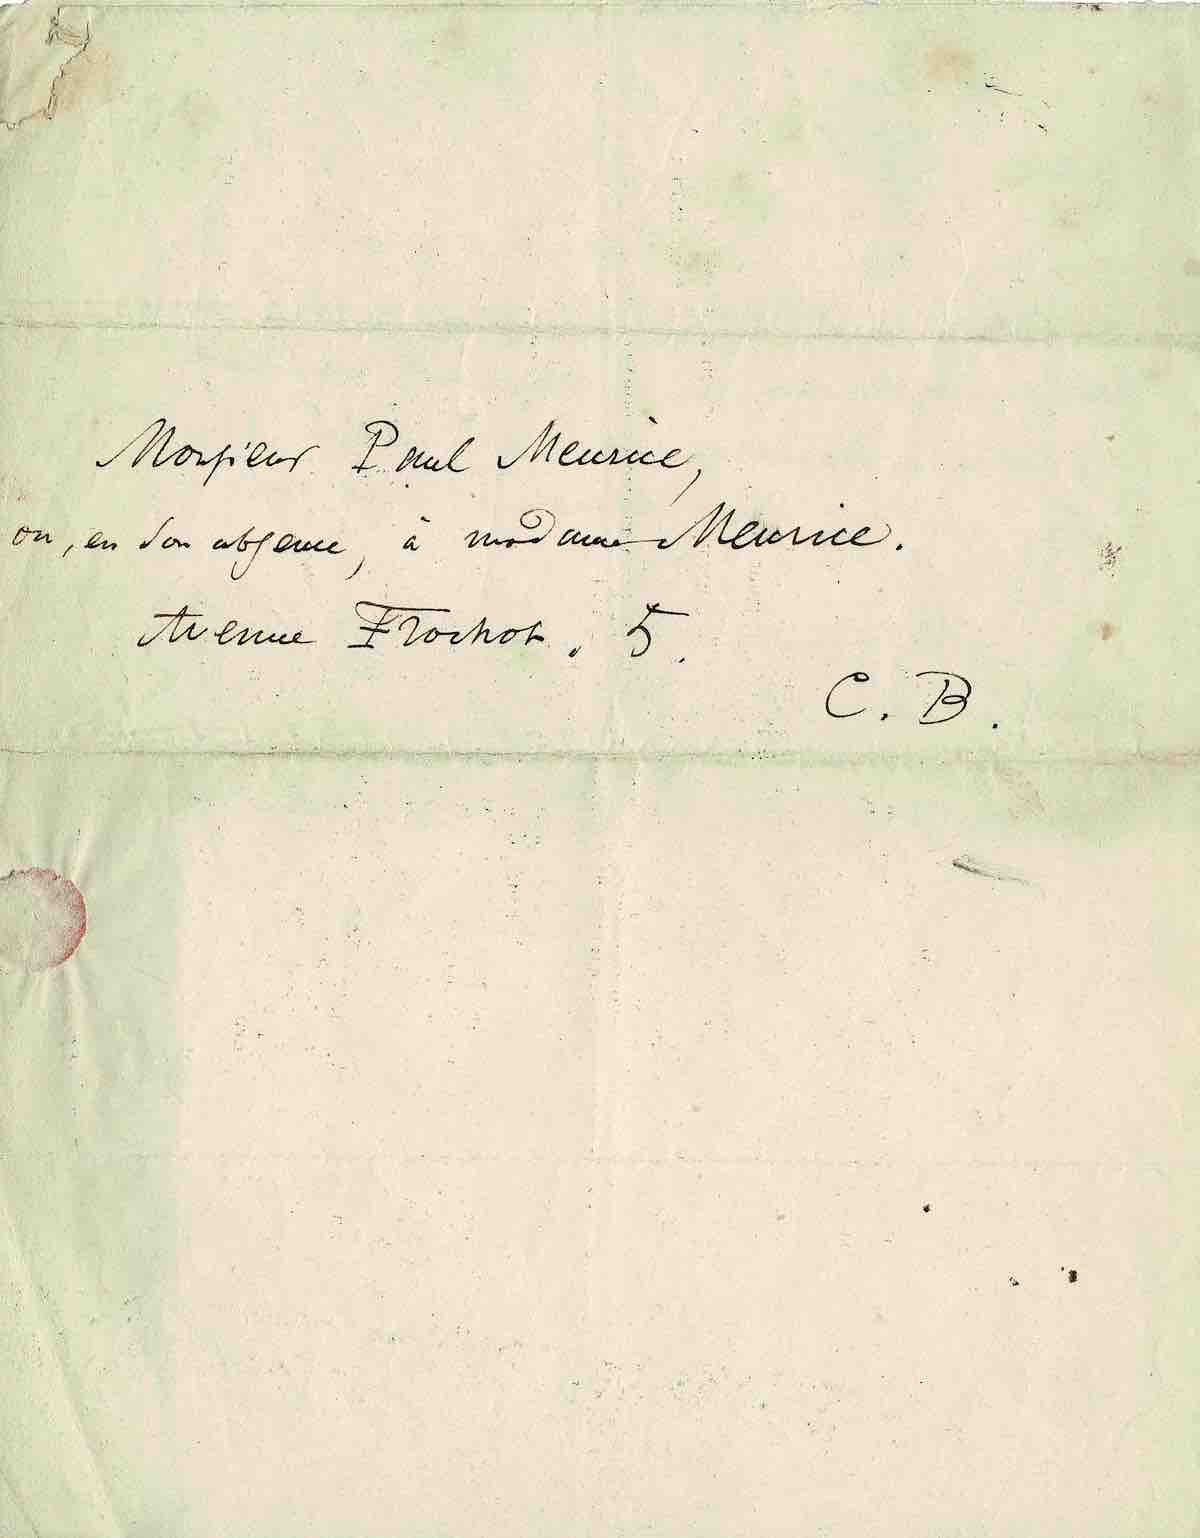 Monsieur Paul Meurice,
ou, en son absence, à madame Meurice.
Avenue Frochot. 5.
C. B.